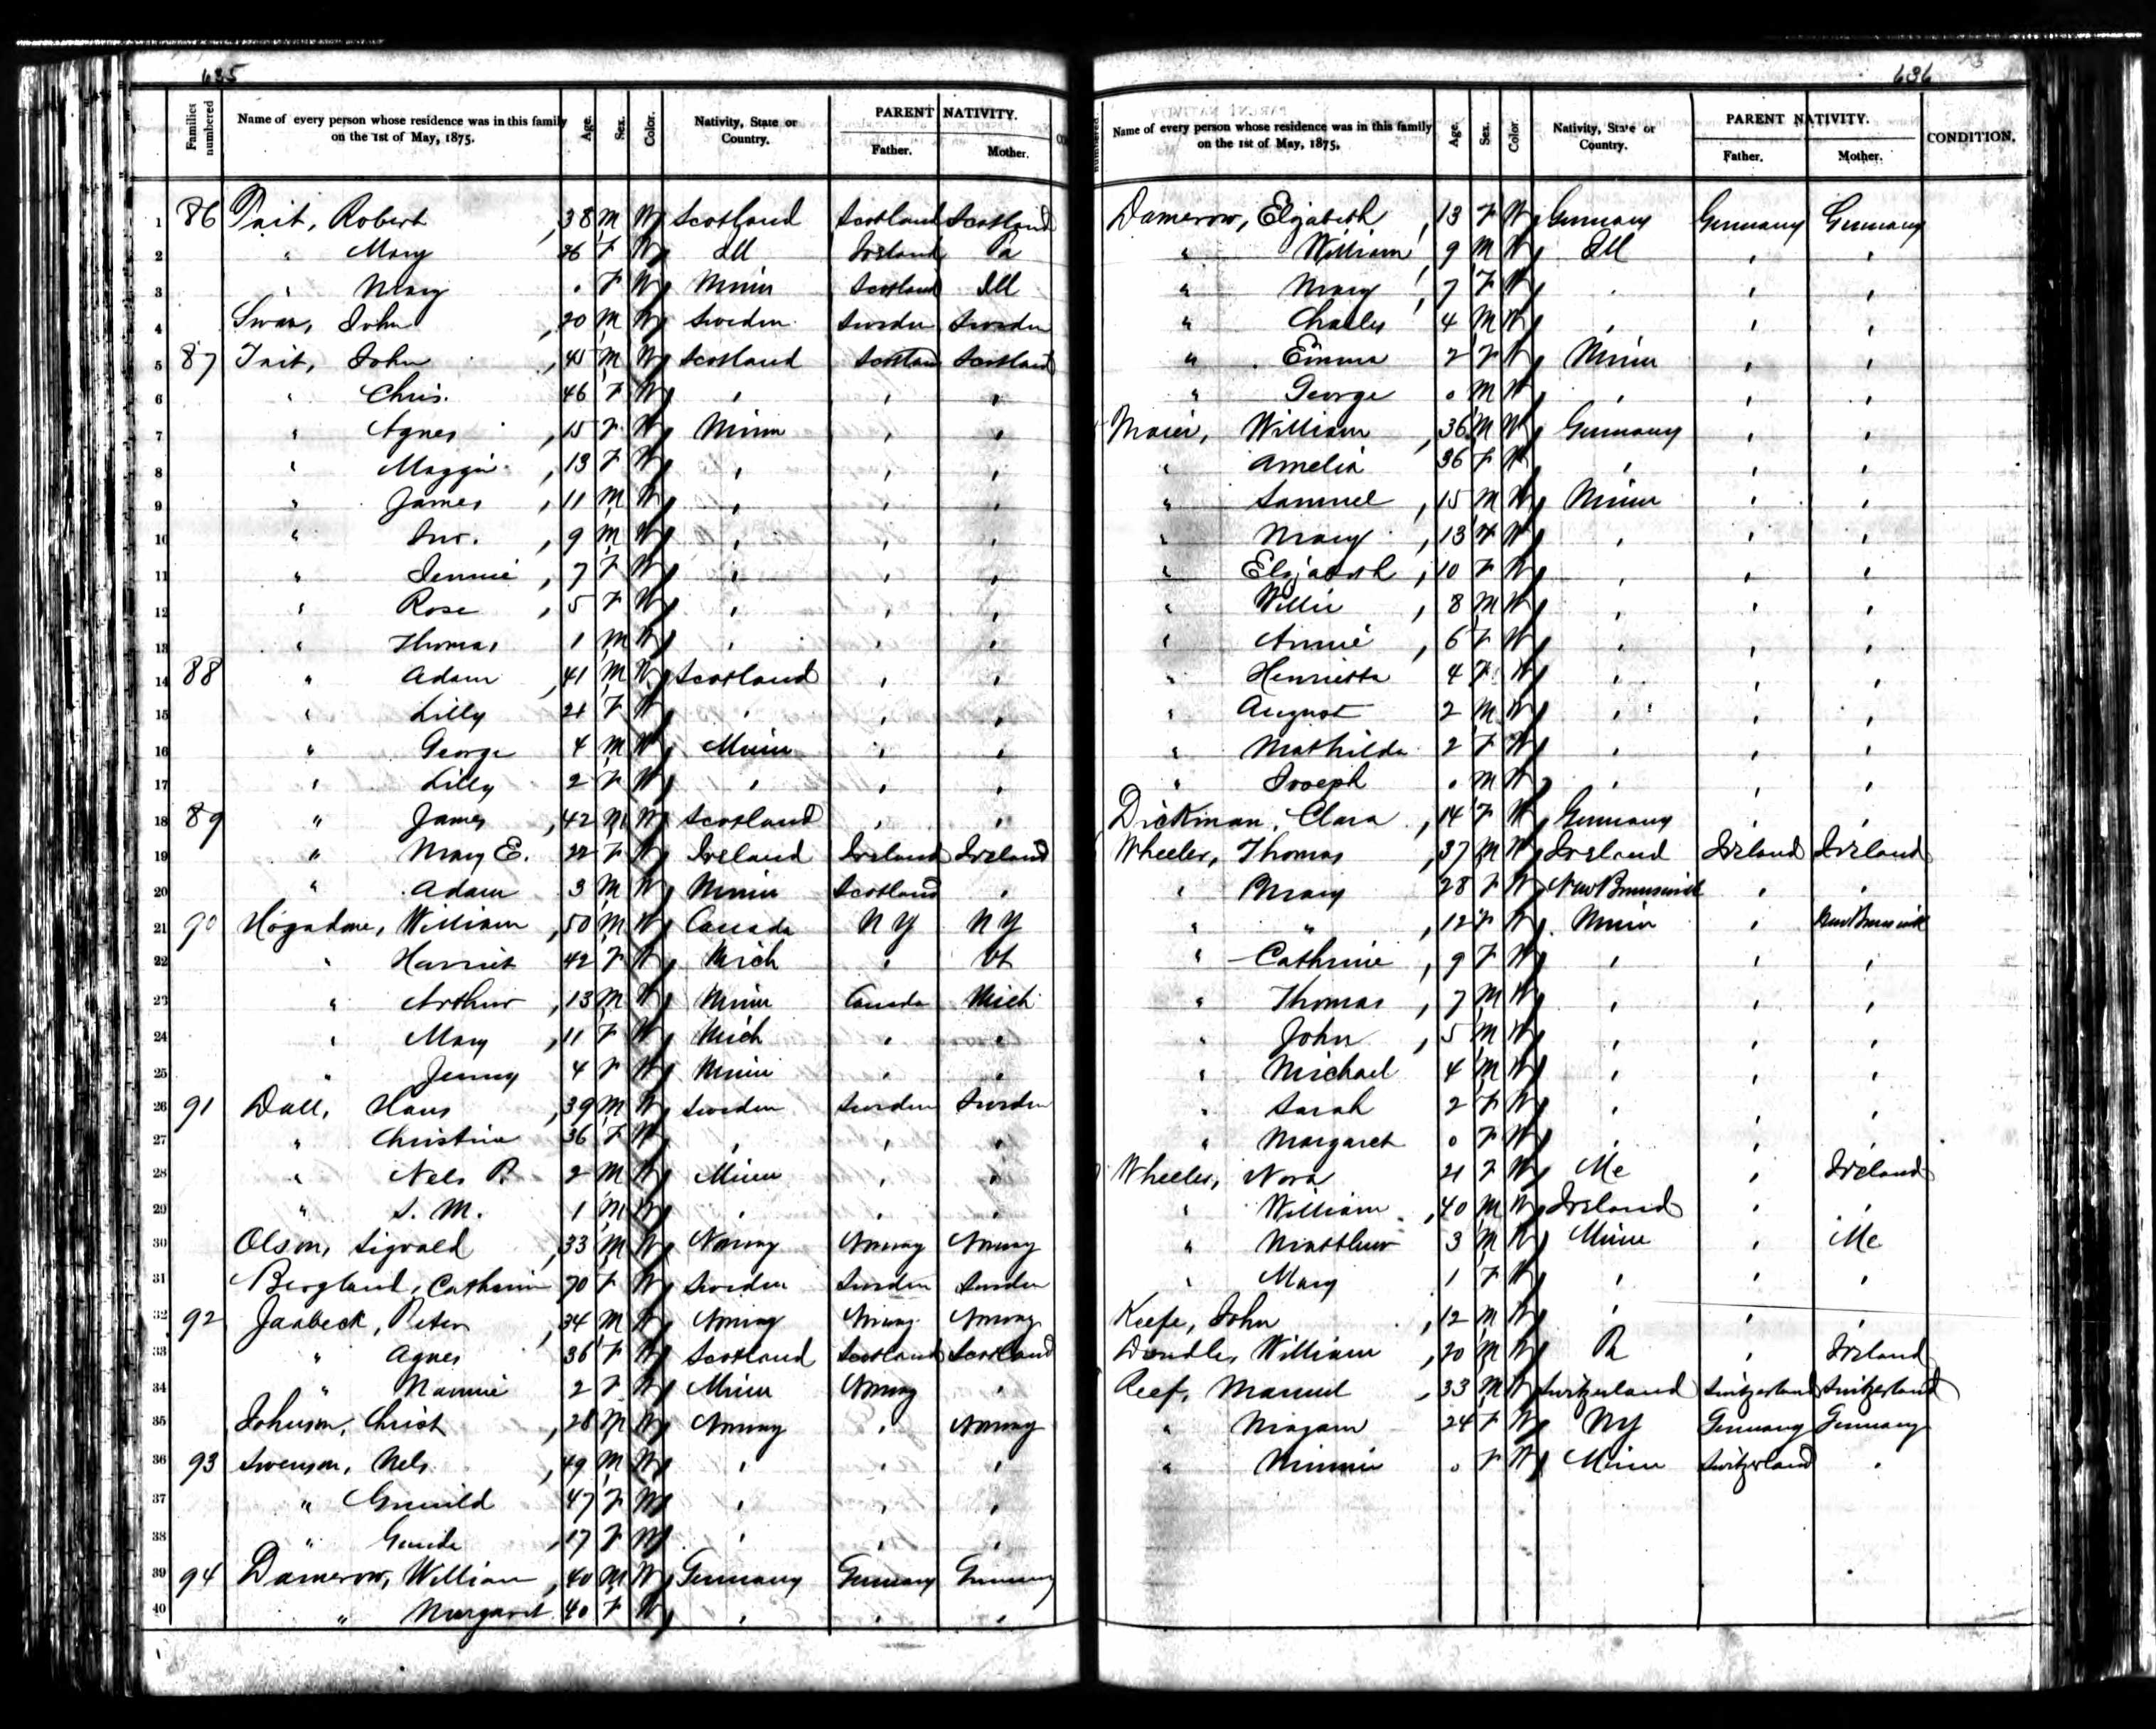 635
Families numbered | Name of every person whose residence was in this family on the 1st of May, 1875. | Age. | Sex. | Color. | Nativity, State or Country. | PARENT NATIVITY. Father. | Mother.
1 86 Tait, Robert , 38 M W Scotland Scotland Scotland
2 " Mary 26 F W Ill Ireland Pa
3 " Mary . F W Minn Scotland Ill
4 Swan, John , 20 M W Sweden Sweden Sweden
5 87 Tait, John , 45 M W Scotland Scotlan Scotland
6 " Chris. 46 F W " " "
7 " Agnes , 15 F W Minn " "
8 " Maggie , 13 F W " " "
9 " James , 11 M W " " "
10 " Jno. , 9 M W " " "
11 " Jennie , 7 F W " " "
12 " Rose , 5 F W " " "
13 " Thomas 1 M W " " "
14 88 " Adam , 41 M W Scotland " "
15 " Lilly 21 F W " " "
16 " George 4 M W Minn " "
17 " Lilly 2 F W " " "
18 89 " James , 42 M W Scotland " "
19 " Mary E. 22 F W Ireland Ireland Ireland
20 " Adam 3 M W Minn Scotland "
21 90 Hogadone, William , 50 M W Canada N Y N Y
22 " Harriet 42 F W Mich " Vt
23 " Arthur , 13 M W Minn Canada Mich
24 " Mary , 11 F W Mich " "
25 " Jenny 4 F W Minn " "
26 91 Dall, Hans , 39 M W Sweden Sweden Sweden
27 " Christina 36 F W " " "
28 " Nels P. 2 M W Minn " "
29 " S. M. 1 M W " " "
30 Olson, Sigvald , 33 M W Norway Norway Norway
31 Bergland, Catharin 70 F W Sweden Sweden Sweden
32 92 Jaabeck, Peter , 34 M W Norway Norway Norway
33 " Agnes 36 F W Scotland Scotland Scotland
34 " Mamie 2 F W Minn Norway "
35 Johnson, Christ , 28 M W Norway " Norway
36 93 Swenson, Nels , 49 M W " " "
37 " Gunild 47 F W " " "
38 " Gunda 17 F W " " "
39 94 Damerow, William , 40 M W Germany Germany Germany
40 " Margaret 40 F W " " "
636
Name of every person whose residence was in this family on the 1st of May, 1875. | Age. | Sex. | Color. | Nativity, State or Country. | PARENT NATIVITY. Father. | Mother. | CONDITION.
Damerow, Elizabeth , 13 F W Germany Germany Germany
" William 9 M W Ill " "
" Mary 7 F W " " "
" Charles 4 M W " " "
" Emma 2 F W Minn " "
" George 0 M W " " "
Maier, William , 36 M W Germany " "
" Amelia 36 F W " " "
" Samuel , 15 M W Minn " "
" Mary , 13 F W " " "
" Elizabeth , 10 F W " " "
" Willie , 8 M W " " "
" Annie , 6 F W " " "
" Henrietta 4 F W " " "
" August 2 M W " " "
" Mathilda 2 F W " " "
" Joseph . M W " " "
Dickman, Clara , 14 F W Germany " "
Wheeler, Thomas , 37 M W Ireland Ireland Ireland
" Mary 28 F W New Brunswick " "
" " , 12 F W Minn " New Brunswick
" Cathrine , 9 F W " " "
" Thomas , 7 M W " " "
" John , 5 M W " " "
" Michael 4 M W " " "
" Sarah 2 F W " " "
" Margaret 0 F W " " "
Wheeler, Nora 21 F W Me " Ireland
" William , 40 M W Ireland " "
" Matthew 3 M W Minn " Me
" Mary 1 F W " " "
Keefe, John , 12 M W " " "
William , 20 M W " Ireland
Reef, Manuel , 33 M W Switzerland Switzerland Switzerland
" 24 F W NY Germany Germany
" Minnie . F W Minn Switzerland "